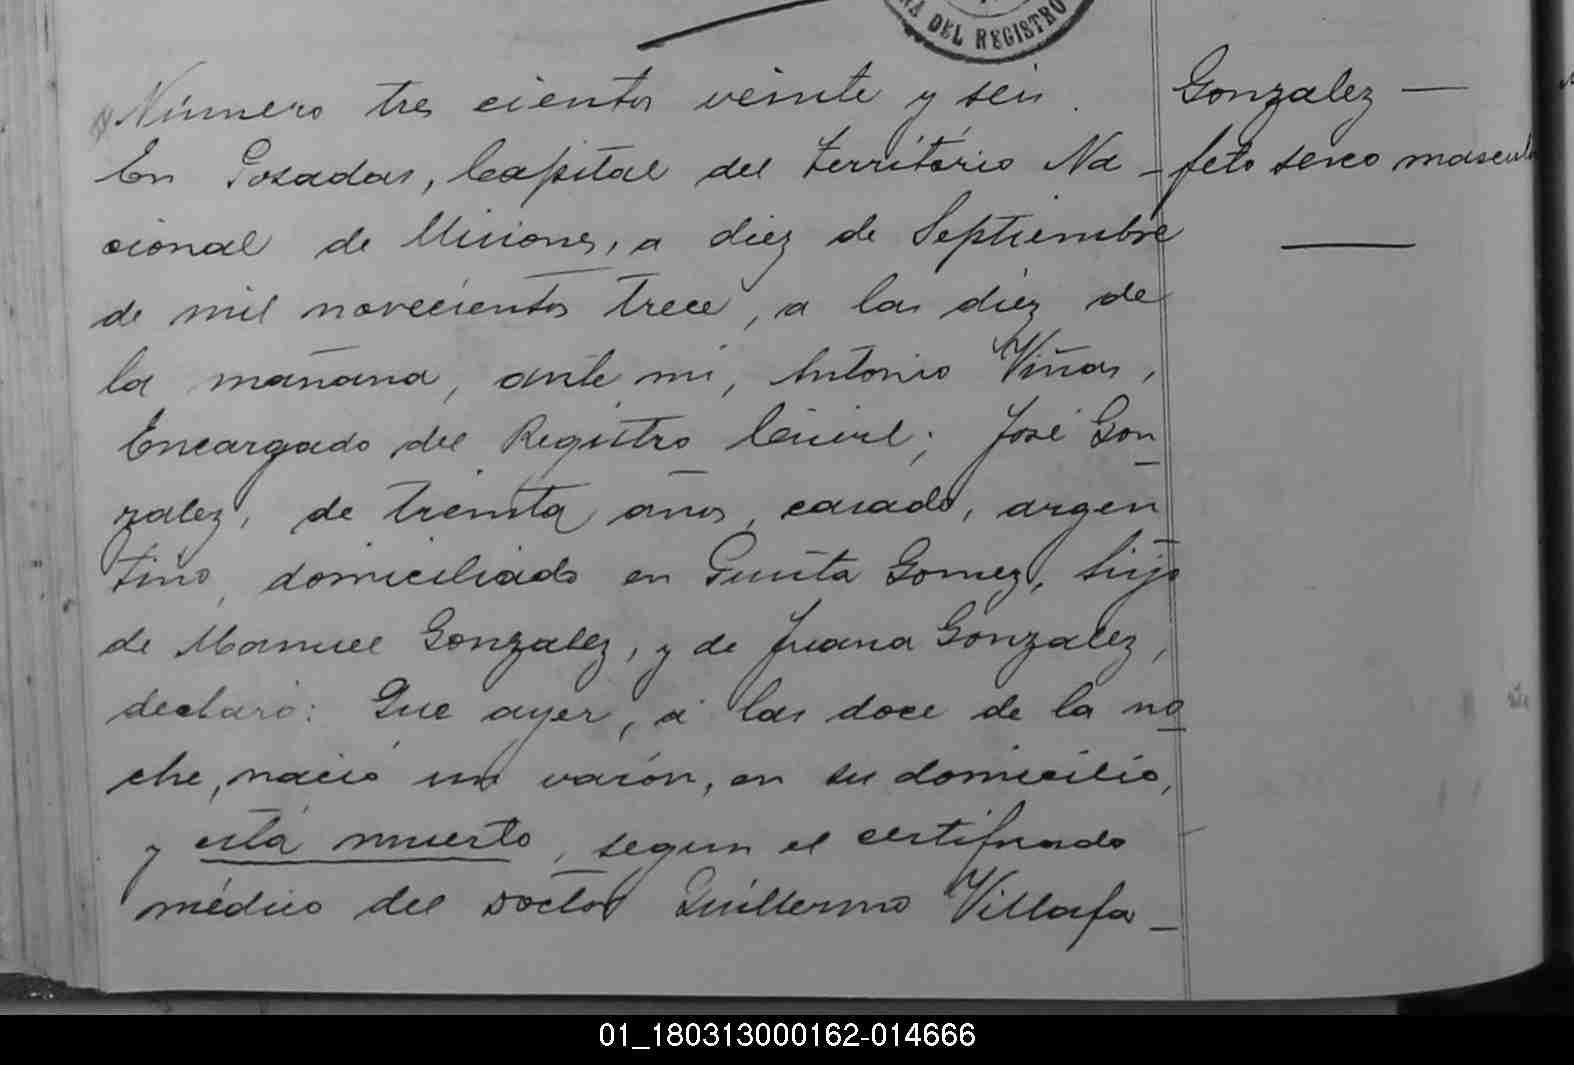 NA DEL REGISTRO
Número tres cientos veinte y seis.
En Posadas, Capital del territorio Na-
cional de Misiones, a diez de Septiembre
de mil novecientos trece, a las diez de
la mañana, ante mi, Antonio Viñas,
Encargado del Registro Civil; José Gon
zalez, de treinta años, casado, argen
tino, domiciliado en Punta Gomez, hijo
de Manuel Gonzalez, y de Juana Gonzalez,
declaró: Que ayer, á las doce de la no
che, nació un varón, en su domicilio,
y está muerto, segun el certificado
médico del Doctor Guillermo Villafa-
Gonzalez —
feto sexo mascul
01_180313000162-014666